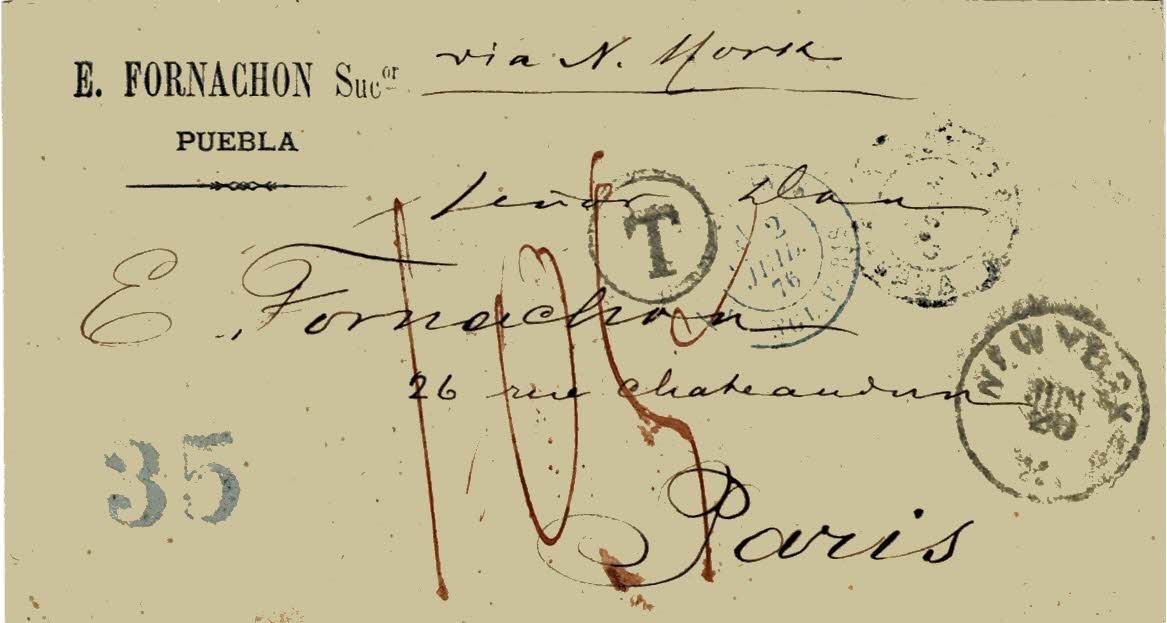 E. FORNACHON Sucor
PUEBLA
via N. York
Señor Don
E. Fornachon
26 rue chateaudun
Paris
T
2
JUIL
76
NEW YORK
JUN
20
35
105